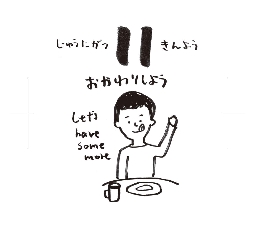 じゅうにがつ 11 きんよう
おかわりしよう
Let's
have
some
more